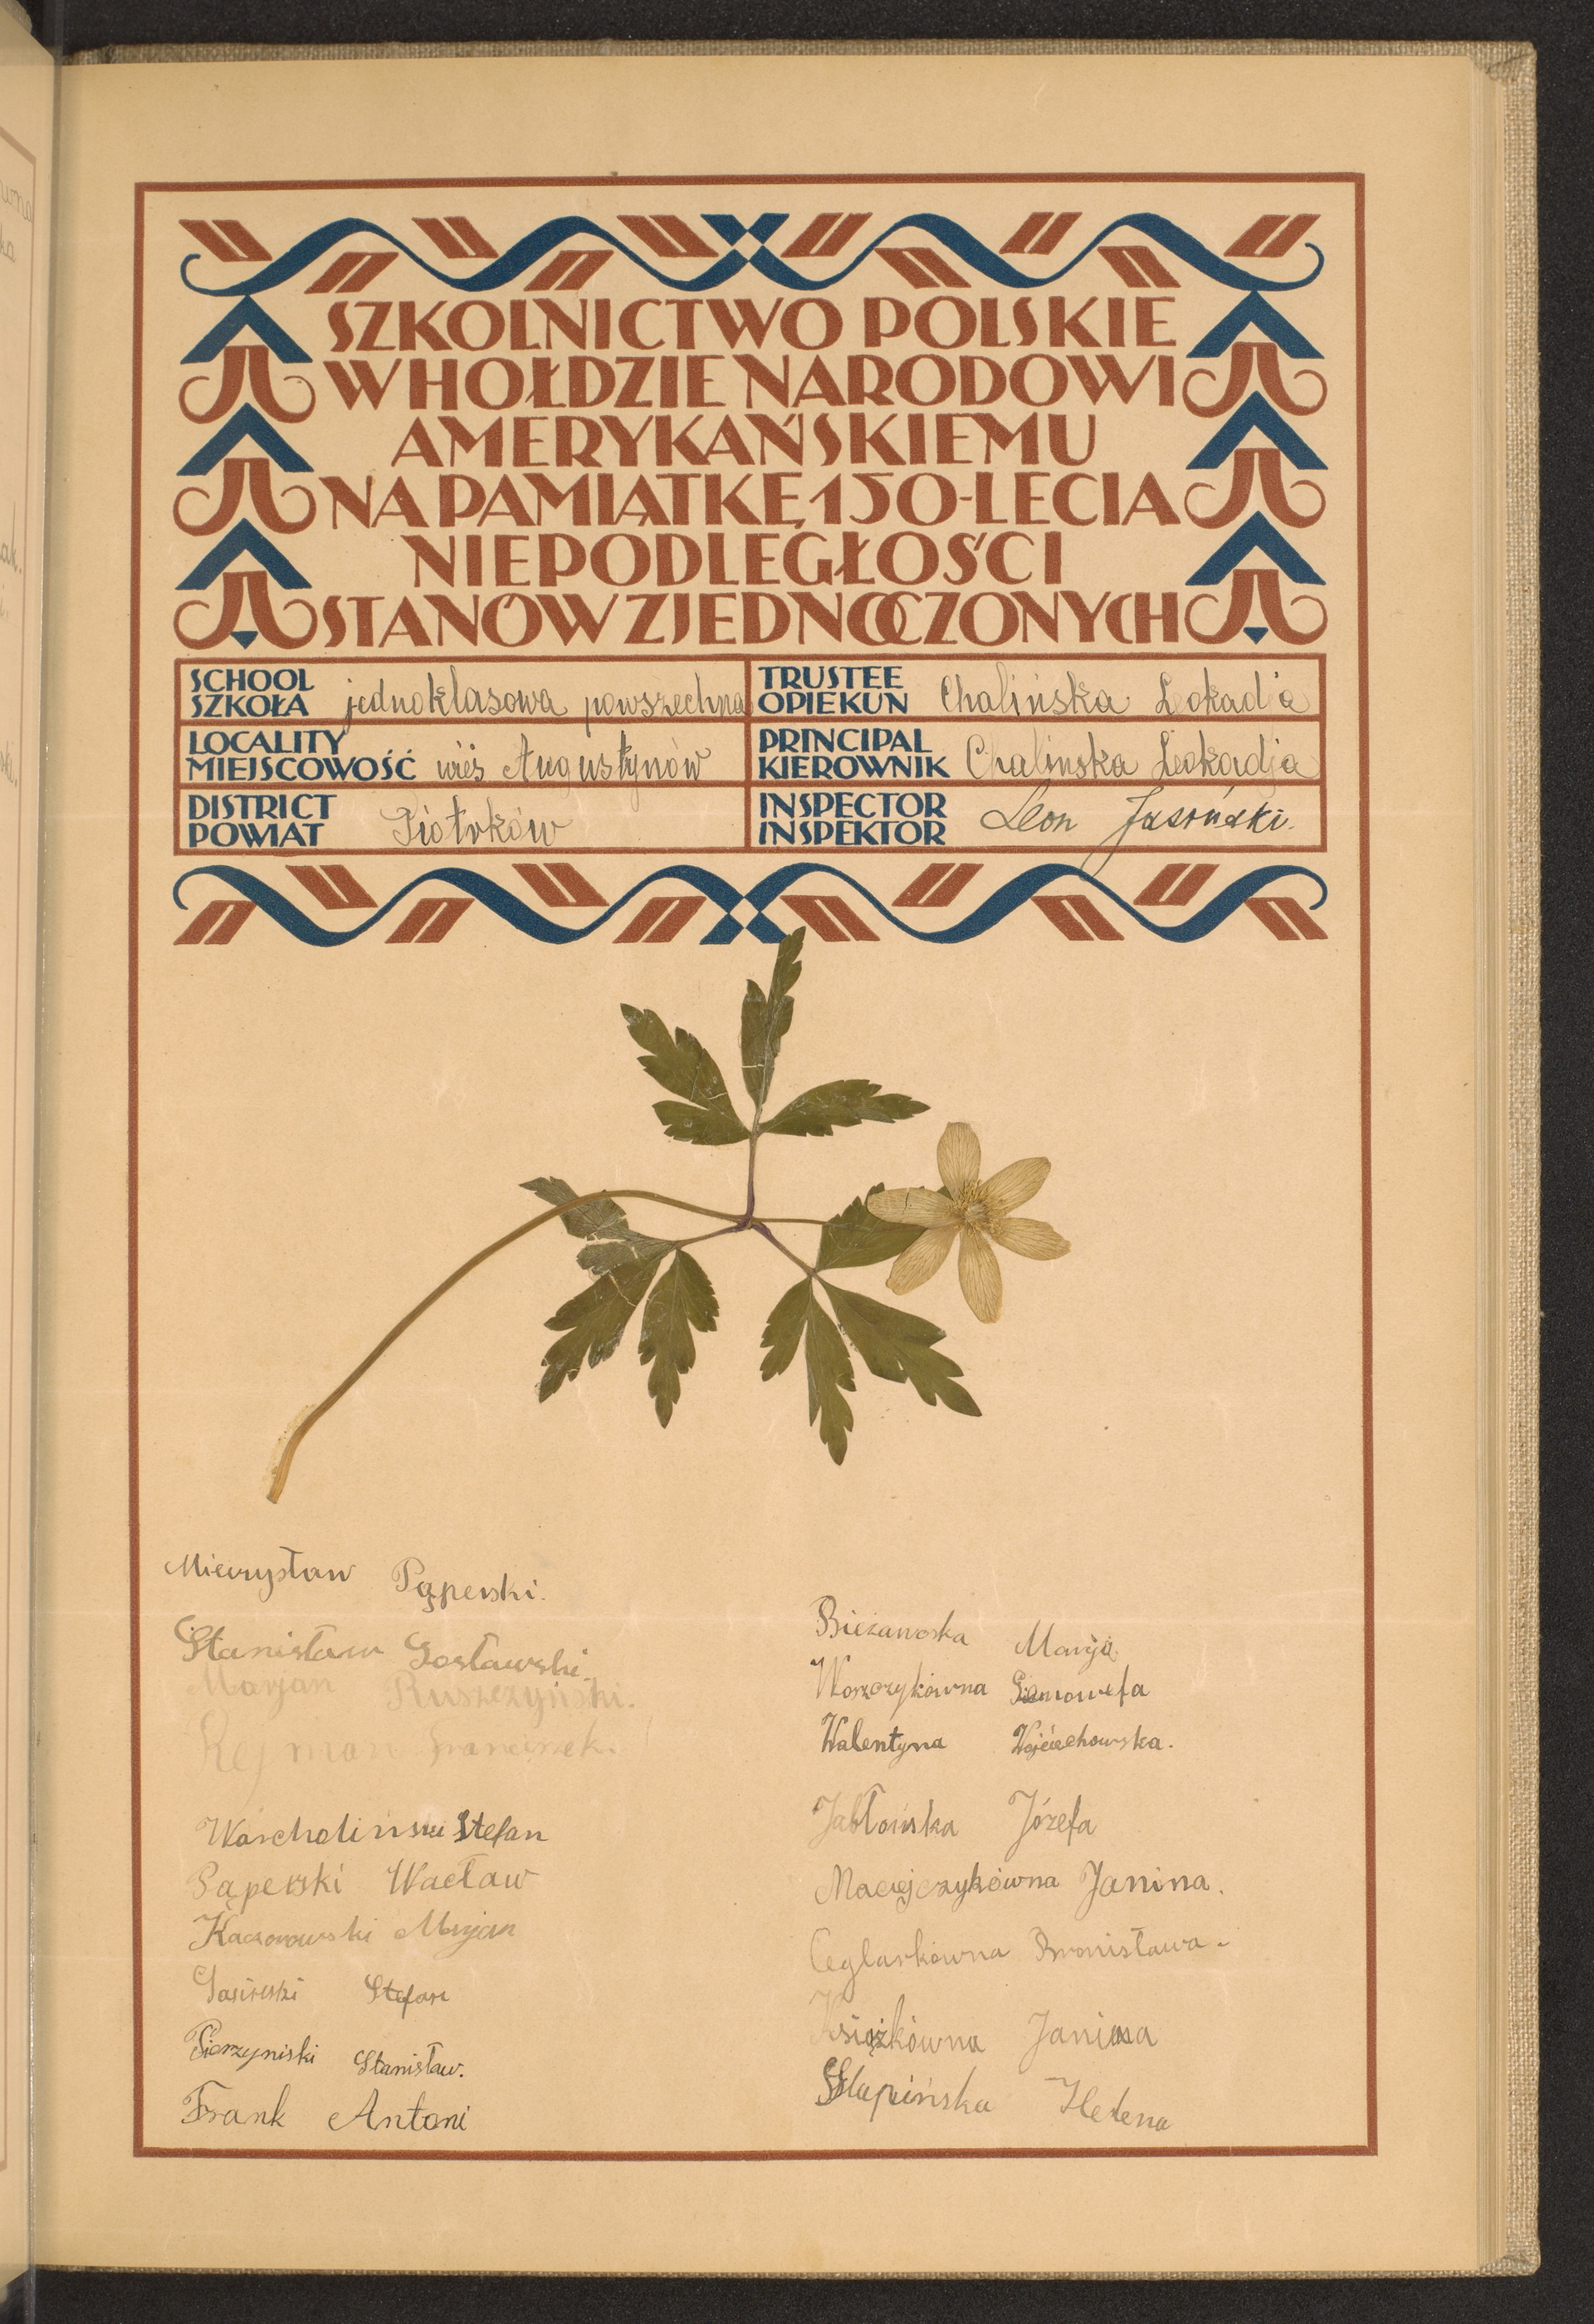 SZKOLNICTWO POLSKIE
W HOŁDZIE NARODOWI
AMERYKAŃSKIEMU
NA PAMIĄTKĘ 150-LECIA
NIEPODLEGŁOŚCI
STANÓW ZJEDNOCZONYCH
SCHOOL
SZKOŁA jednoklasowa powszechna
LOCALITY
MIEJSCOWOŚĆ wieś Augustynów
DISTRICT
POWIAT Piotrków
TRUSTEE
OPIEKUN Chalińska Leokadja
PRINCIPAL
KIEROWNIK Chalinska Leokadja
INSPECTOR
INSPEKTOR Leon Jasiński.
Mieczysław Pąperski.
Stanisław Gosławski.
Marjan Ruszczyński.
Rejman Franciszek.
Warcholiński Stefan
Pąperski Wacław
Kaczorowski Marjan
Stefan
Pierzyniski Stanisław.
Frank Antoni
Bieżanoska Marija
Woszczykówna Genowefa
Walentyna Wojciechowska.
Jabłońska Józefa
Maciejczykówna Janina.
Ceglarkówna Bronisława.
Książkówna Janina
Słupińska Helena